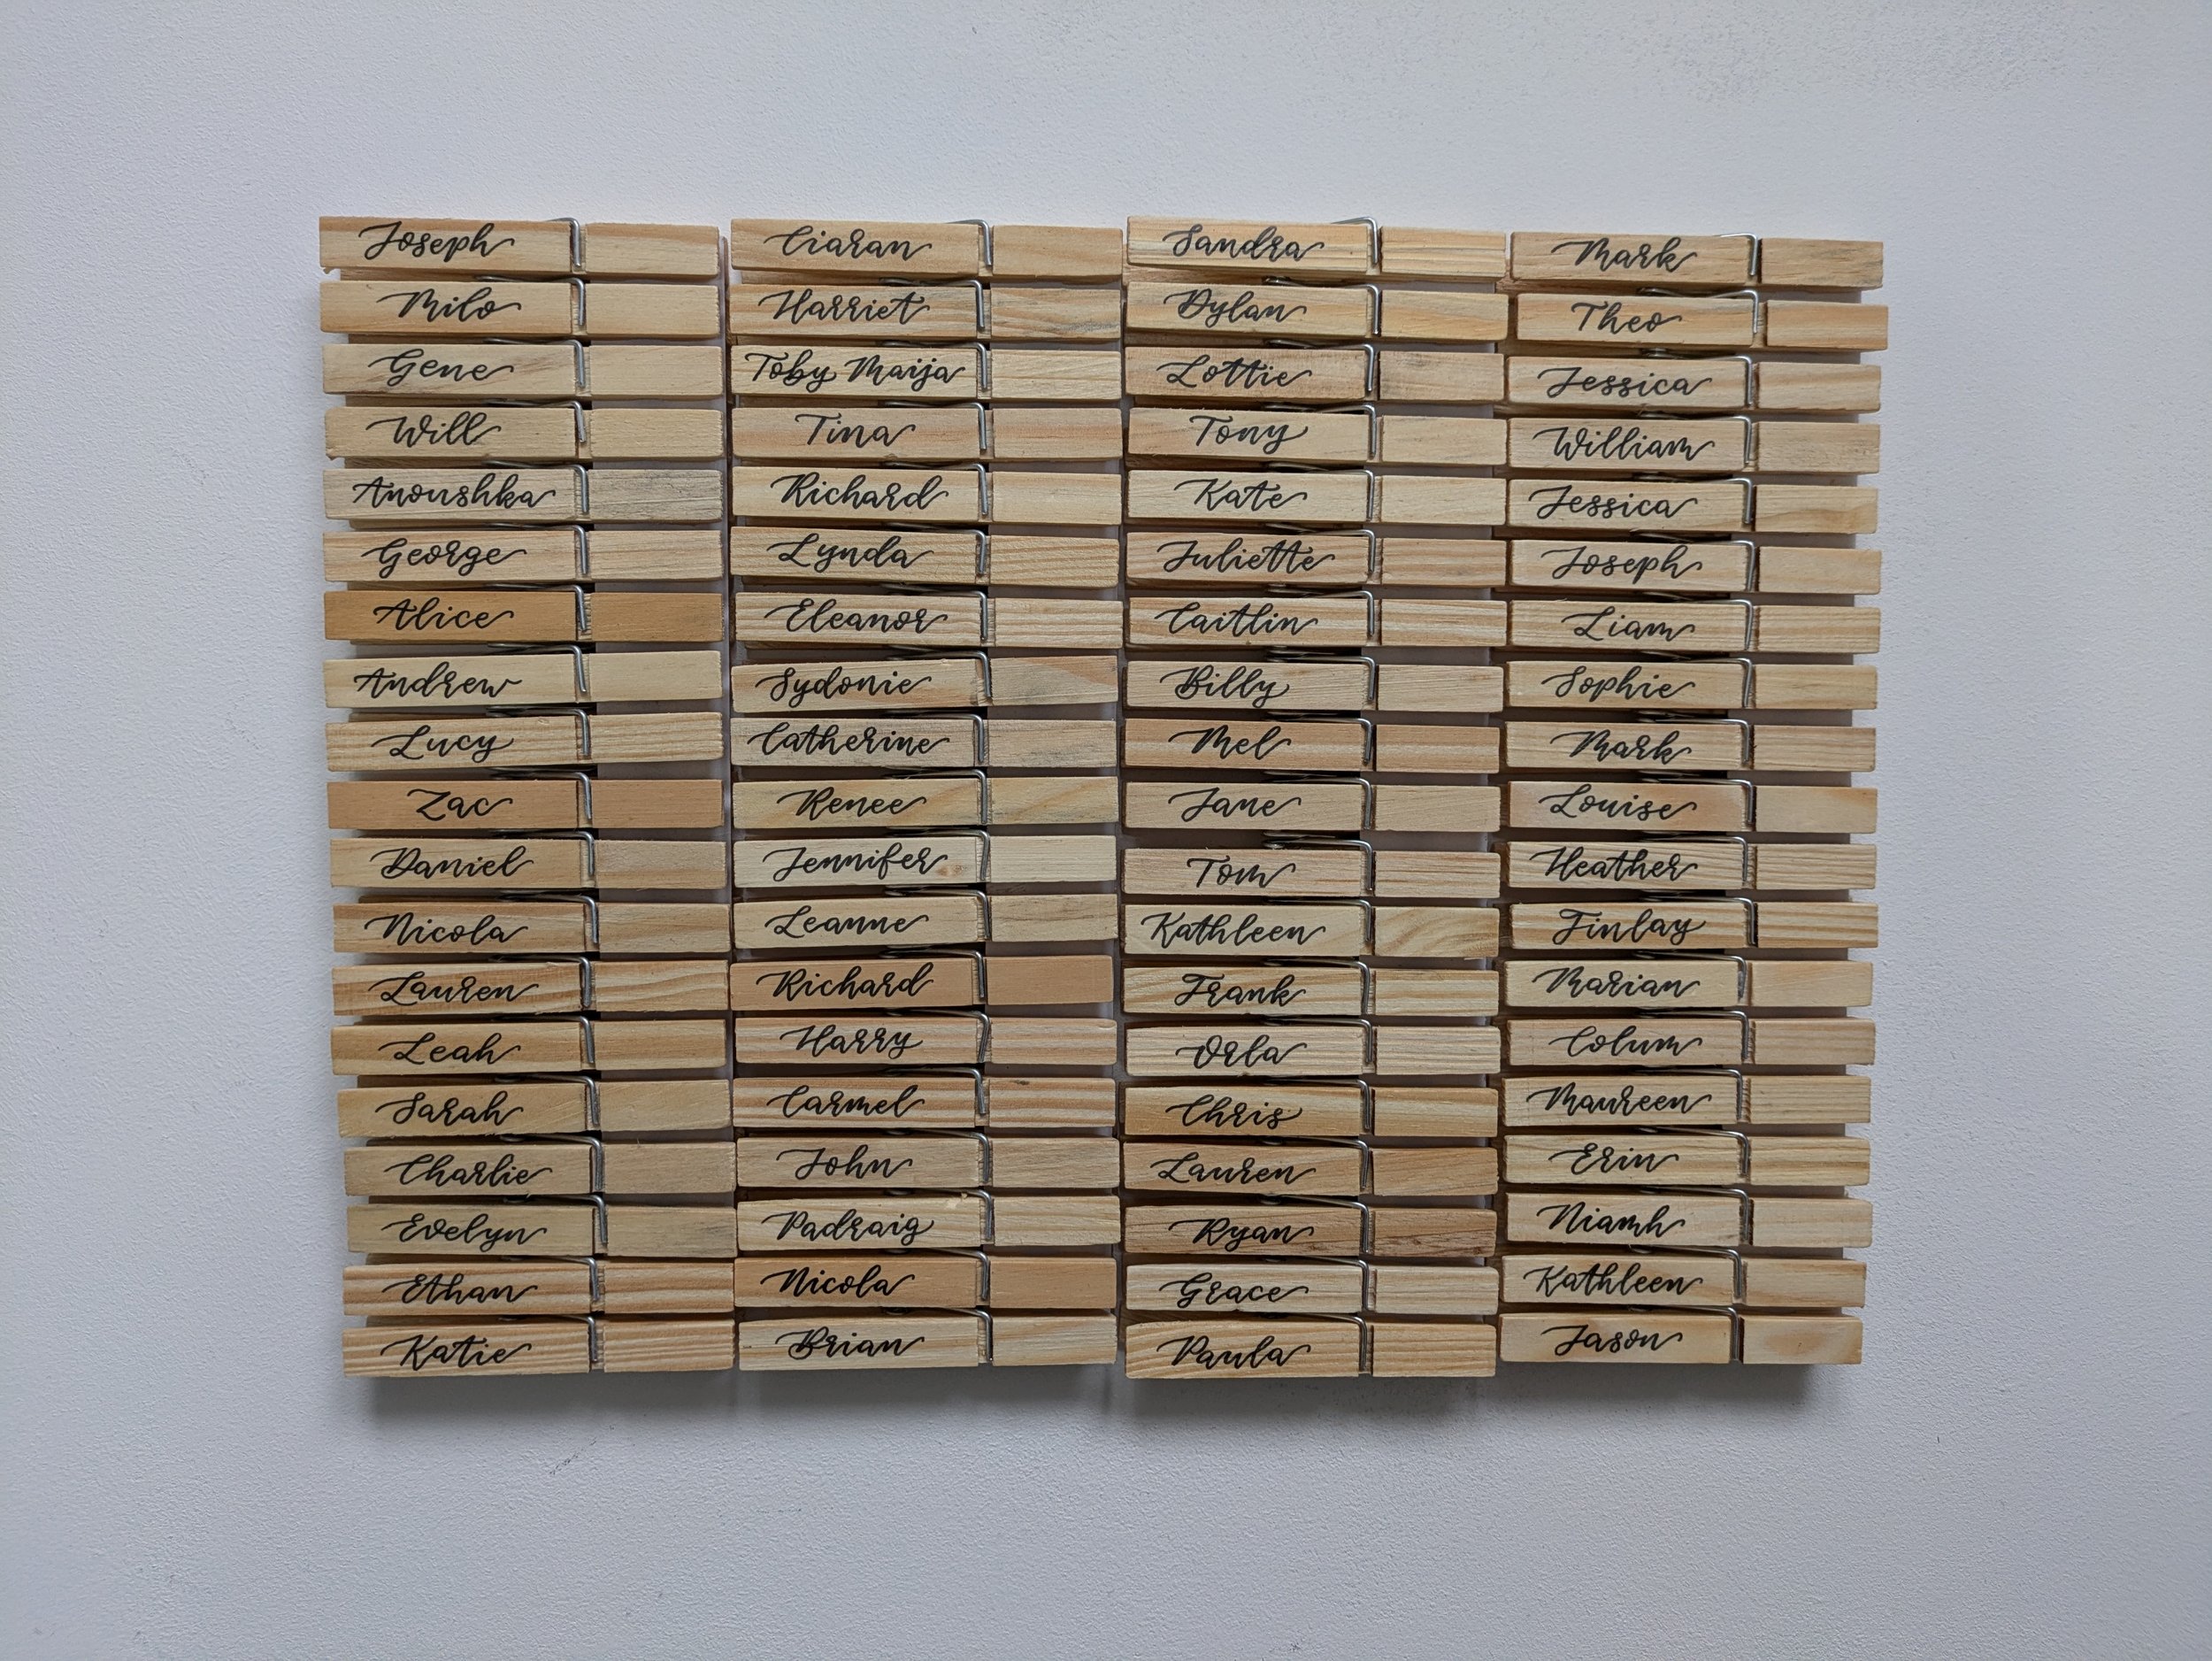 Joseph
Milo
Gene
Will
Anoushka
George
Alice
Andrew
Lucy
Zac
Daniel
Nicola
Lauren
Leah
Sarah
Charlie
Evelyn
Ethan
Katie
Ciaran
Harriet
Toby Maija
Tina
Richard
Lynda
Eleanor
Sydonie
Catherine
Renee
Jennifer
Leanne
Richard
Harry
Carmel
John
Padraig
Nicola
Brian
Sandra
Dylan
Lottie
Tony
Kate
Juliette
Caitlin
Billy
Mel
Jane
Tom
Kathleen
Frank
Orla
Chris
Lauren
Ryan
Grace
Paula
Mark
Theo
Jessica
William
Jessica
Joseph
Liam
Sophie
Mark
Louise
Heather
Finlay
Marian
Colum
Maureen
Erin
Niamh
Kathleen
Jason